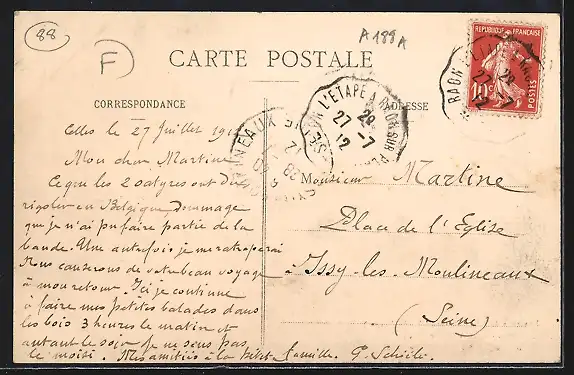 88
F
A199A
CARTE POSTALE
CORRESPONDANCE
ADRESSE
Celles le 27 Juillet 191
Mon cher Martine
Ce que les 2 satyres ont dû
rigoler en Belgique, dommage
que je n'ai pu faire partie de la
bande. Une autre fois je me ratraperai
Nous causerons de votre beau voyage
à mon retour. Ici je continue
à faire mes petites balades dans
les bois 3 heures le matin et
autant le soir je ne sens pas
le moisi. Mes amitiés à la petite famille. G.
Monsieur Martine
Place de l'Eglise
à Issy-les-Moulineaux
(Seine)
REPUBLIQUE FRANÇAISE
10c
POSTES
RAON L'ETAPE A RAON SUR
27-7
12
27-7
12